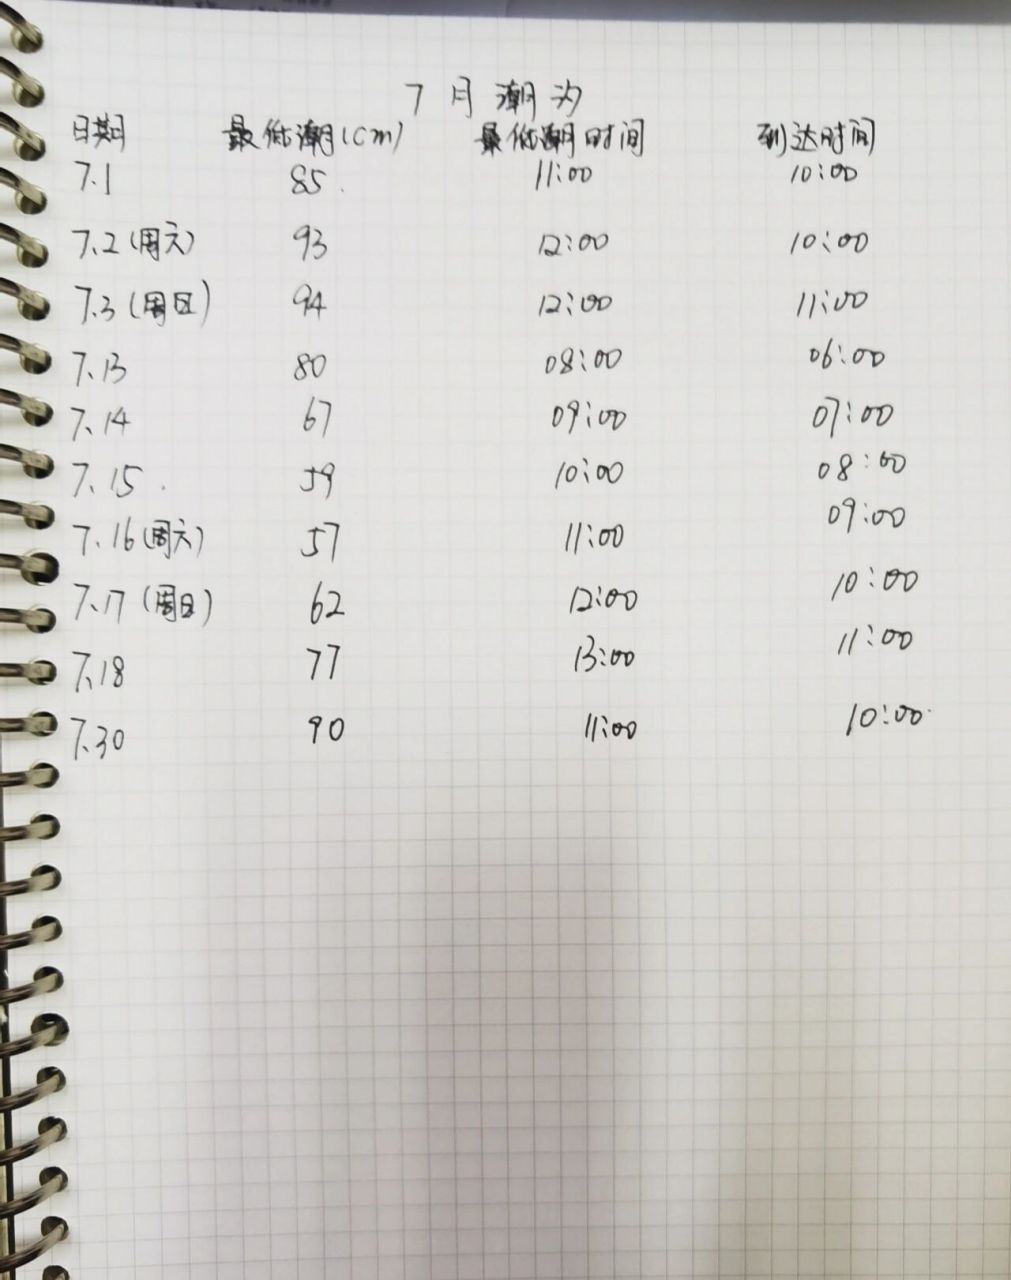 7月潮汐
日期 最低潮(cm) 最低潮时间 到达时间
7.1 85 11:00 10:00
7.2(周六) 93 12:00 10:00
7.3(周日) 94 12:00 11:00
7.13 80 08:00 06:00
7.14 67 09:00 07:00
7.15 59 10:00 08:00
7.16(周六) 57 11:00 09:00
7.17(周日) 62 12:00 10:00
7.18 77 13:00 11:00
7.30 90 11:00 10:00